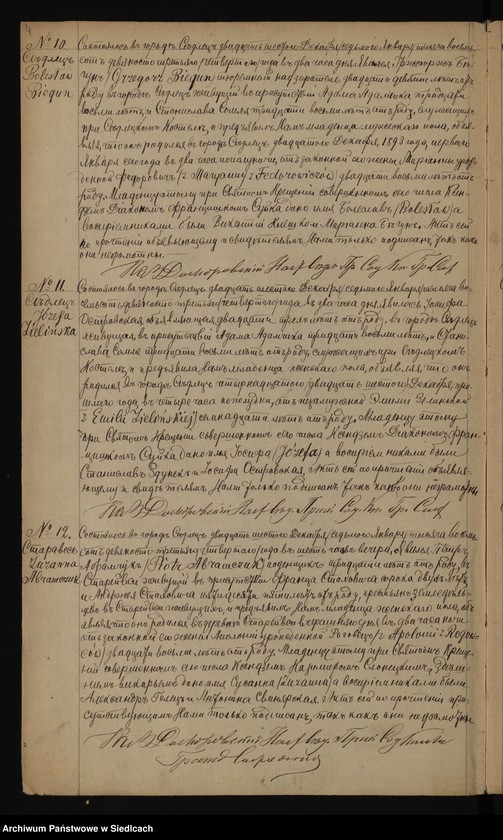 4
№ 10.
Сѣдлецъ
Bolesław
Biegun
Состоялось въ городѣ Сѣдлецъ двадцать шестого Декабря/седьмого Января/ тысяча восемь
сотъ девяносто третьяго/четвертаго/ года въ два часа дня. Явился Григоржъ Бѣ
гунъ /Grzegorz Biegun/ тюремный надзиратель двадцати девяти лѣтъ отъ
роду въ городѣ Сѣдлецъ живущій въ присутствіи Адама Адамчика тридцати
восьми лѣтъ, и Станислава Сомля тридцати восьми лѣтъ отъ роду, служащихъ
при Сѣдлецкомъ Костелѣ, и предъявилъ Намъ младенца мужескаго пола, объя
вляя что онъ родился въ городѣ Сѣдлецъ двадцатаго Декабря 1893 года, перваго
Января сего года въ два часа пополуночи, отъ законной его жены Маріанны урож
денной Федоровичъ /z Maryanny z Fedorowiczów/ двадцати восьми лѣтъ отъ
роду. Младенцу этому при Святомъ Крещеніи совершенномъ сего числа Ксен
дзомъ Діакономъ Францишкомъ дано имя Болеславъ /Bolesław/ а
воспріемниками были и Маріанна Бѣгунъ. Актъ сей
по прочтеніи объявляющему и свидѣтелямъ Нами только подписанъ, такъ какъ
они неграмотны.
№ 11.
Сѣдлецъ
Józefa
Zielińska
Состоялось въ городѣ Сѣдлецъ двадцать шестого Декабря/седьмого Января/ тысяча во
семьсотъ девяносто третьяго/четвертаго/ года въ два часа дня. Явилась Іосифа
Островская, объявляющая двадцати трехъ лѣтъ отъ роду, въ городѣ Сѣдлецъ
живущая, въ присутствіи Адама Адамчика тридцати восьми лѣтъ, и Стани
слава Сомля тридцати восьми лѣтъ отъ роду, служащихъ при Сѣдлецкомъ
Костелѣ, и предъявила Намъ младенца женскаго пола, объявляя что онъ
родился въ городѣ Сѣдлецъ четырнадцатаго /двадцать шестого/ Декабря, про
шлаго года, въ четыре часа пополудни, отъ незамужней Эмиліи Зелинской
/z Emilii Zielińskiej/ семнадцати лѣтъ отъ роду. Младенцу этому
при Святомъ Крещеніи совершенномъ сего числа Ксендзомъ Діакономъ Фран
цишкомъ дано имя Іосифа /Józefa/ а воспріемниками были
Станиславъ и Іосифа Островская. Актъ сей по прочтеніи объявля
ющему и свидѣтелямъ Нами только подписанъ такъ какъ они неграмотны
№ 12.
Старавесь
Zuzanna
Abramczuk
Состоялось въ городѣ Сѣдлецъ двадцать шестого Декабря/седьмого Января/ тысяча восемь
сотъ девяносто третьяго/четвертаго/ года въ шесть часовъ вечера. Явился Петръ
Абрамчукъ /Piotr Abramczuk/ поденщикъ тридцати лѣтъ отъ роду, въ
Старейвси живущій въ присутствіи Франца Стоховича сорока двухъ лѣтъ,
и Андржея Стоховича пятидесяти пяти лѣтъ отъ роду, крестьянъ земледѣль
цевъ въ Старейвси живущихъ, и предъявилъ Намъ младенца женскаго пола, объ
являя что онъ родился въ деревнѣ Старейвси вчерашняго дня въ два часа ночи
отъ законной его жены Аполоніи урожденной Роговичъ /z Apolonii z Rogowi
czów/ двадцати восьми лѣтъ отъ роду. Младенцу этому при Святомъ Креще
ніи совершенномъ сего числа Ксендзомъ Казимиромъ Слонецкимъ, Здѣш
нимъ викарьемъ дано имя Сусанна /Zuzanna/ а воспріемниками были
Александръ и Антонина Свинярская. Актъ сей по прочтеніи при
сутствующимъ Нами только подписанъ, такъ какъ они неграмотны
Archiwum Państwowe w Siedlcach